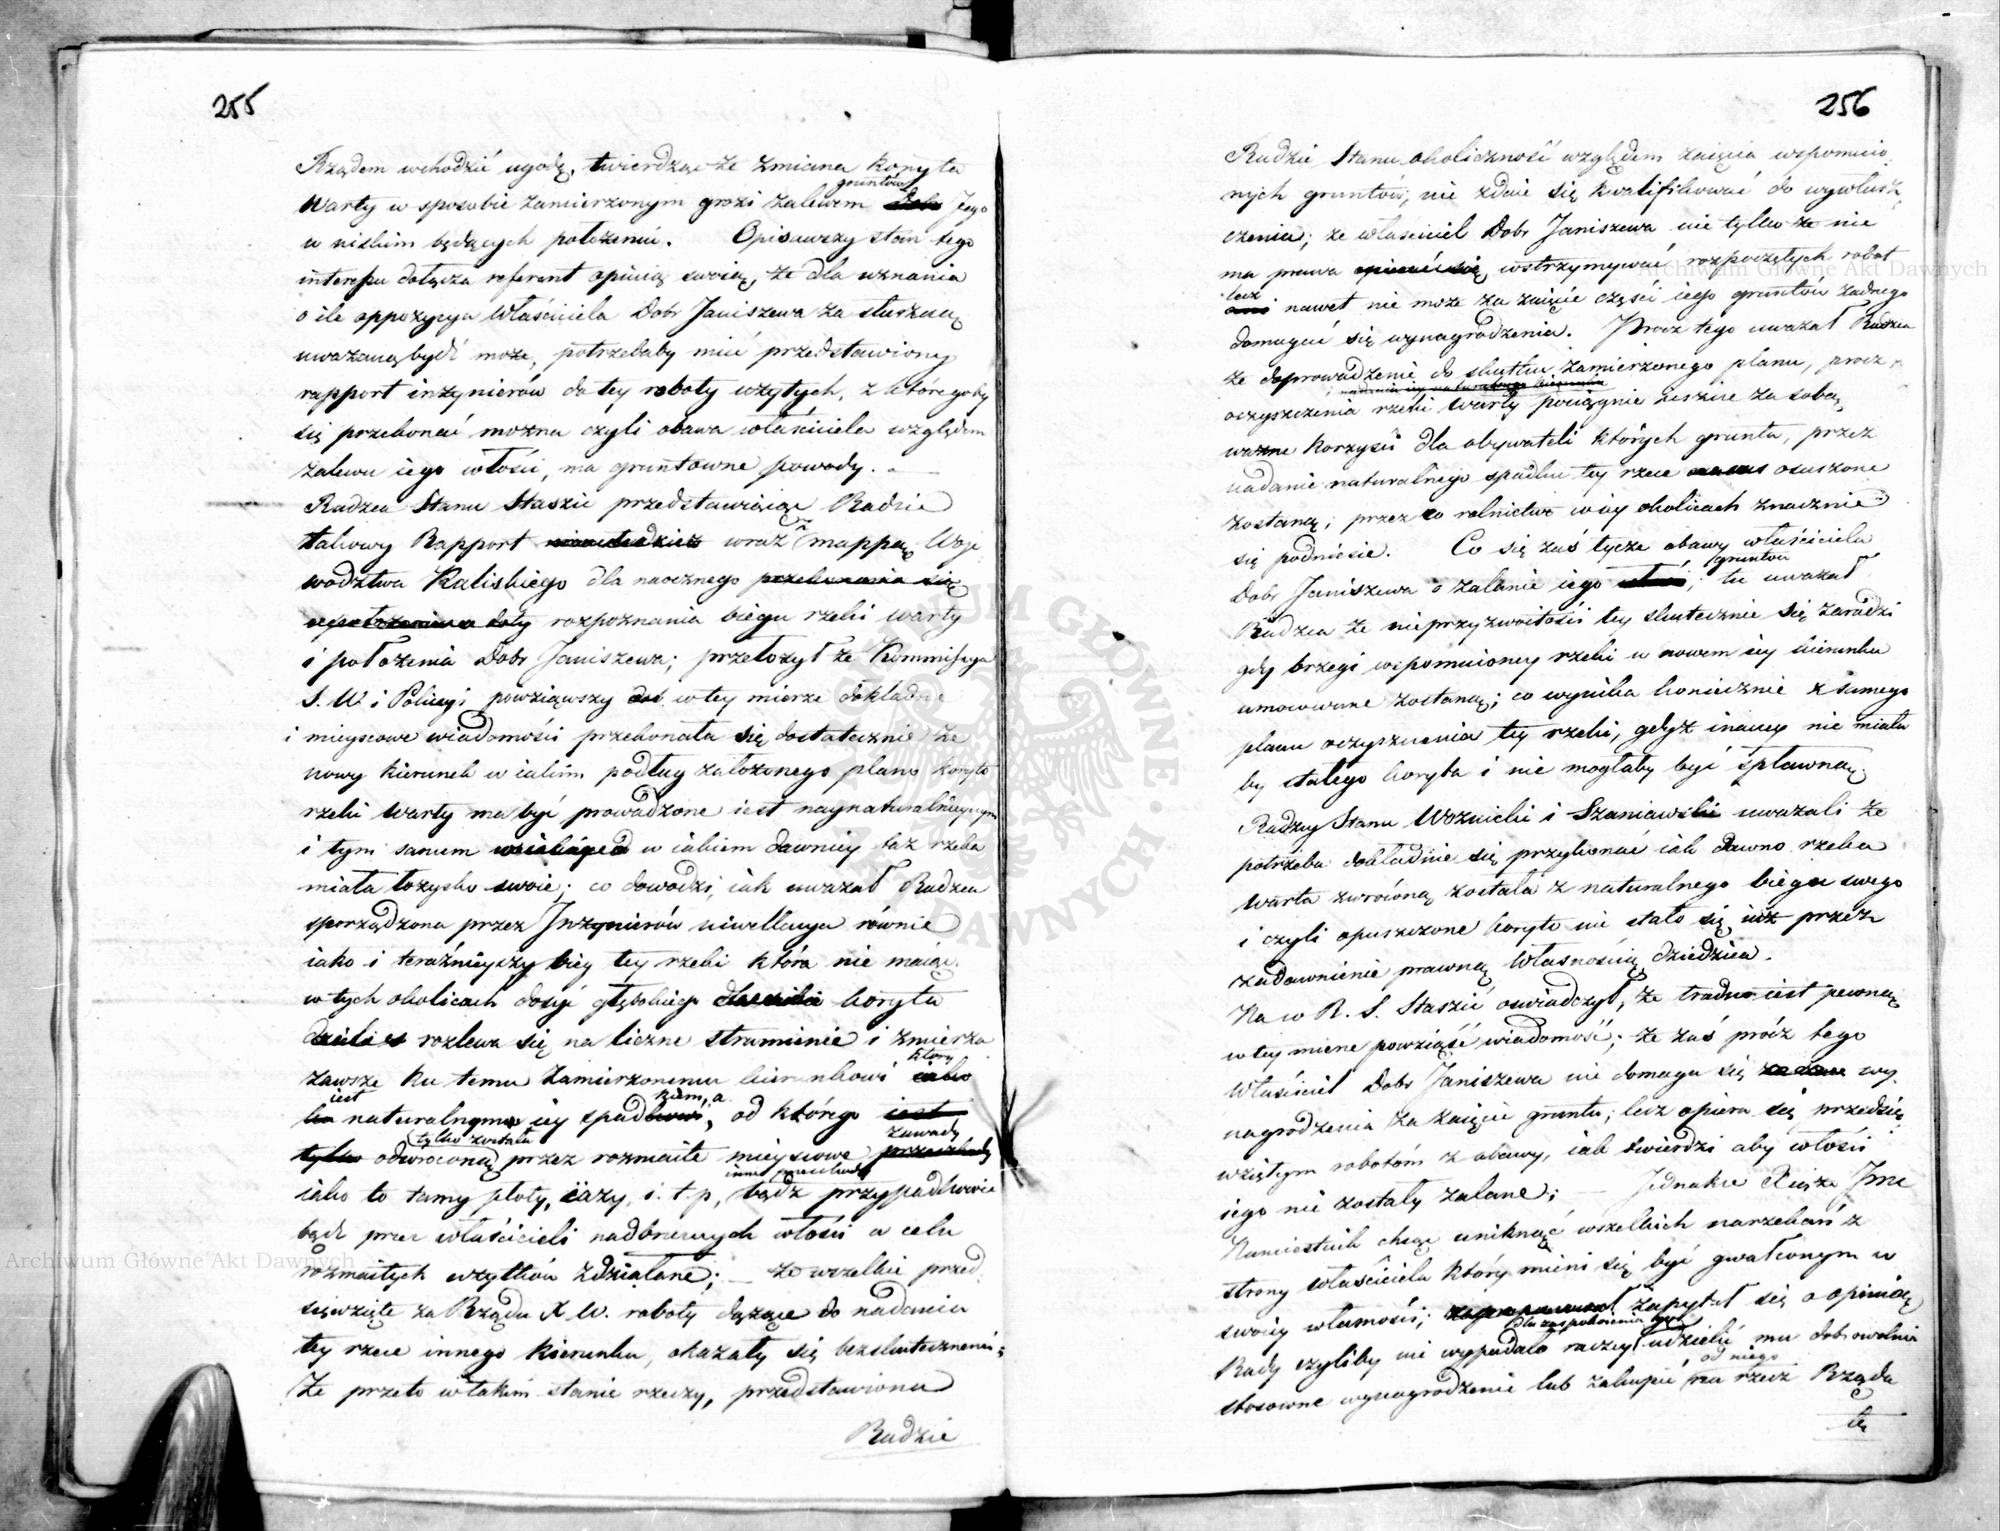 255
Rządem wchodzić ugodę, twierdząc że zmiana koryta
gruntów
Warty w sposobie zamierzonym grozi zalewem dobr Jego
w niskim będących położeniu. Opisawszy stan tego
interessu dołącza referent opinią swoią, że dla uznania
o ile oppozycya Właściciela Dobr Janiszewa za słuszną
uważaną bydź może, potrzebaby mieć przedstawiony
rapport inżynierów do tey roboty użytych, z któregoby
się przekonać można czyli obawa właściciela względem
zalewu iego włości, ma gruntowne powody. —
Radzca Stanu Staszic przedstawiaiąc Radzie
takowy Rapport wraz z mappą Woje
wodztwa Kaliskiego dla naocznego przekonania się
rozpoznania biegu rzeki warty
i położenia Dobr Janiszewa; przełożył że Kommissya
S. W. i Policyi powziąwszy w tey mierze dokładne
i mieyscowe wiadomości przekonała się dostatecznie że
nowy kierunek w iakim podług założonego planu koryto
rzeki Warty ma być prowadzone iest naynaturalnieyszym
i tym samem w iakiem dawniey taż rzeka
miała łożysko swoie; co dowodzi, iak uważał Radzca
sporządzona przez Inżynierów niwellacya równie
iako i teraźnieyszy bieg tey rzeki która nie maiąc
w tych okolicach dosyć głębokiego koryta
dzieli się rozlewa się na liczne strumienie i zmierza
który
zawsze ku temu zamierzonemu kierunkowi iako
iest kiem, a
naturalnym iey spadkowi, od którego iest
tylko została zawady
tylko odwróconą przez rozmaite mieyscowe przeszkody
inne przeszkody
iako to tamy płoty, iazy, i. t. p, bądź przypadkowie
bądź przez właścicieli nadbrzeżnych włości w celu
rozmaitych użytków zdziałane; — że wszelkie przed
sięwzięte za Rządu X. W. roboty dążące do nadania
tey rzece innego kierunku, okazały się bezskutecznemi;
Że przeto w takim stanie rzeczy, przedstawiona
Radzie
256
Radzie Stanu okoliczność względem zaięcia wspomnio
nych gruntów, nie zdaie się kwalifikować do wywłasz
czenia; że właściciel Dobr Janiszewa nie tylko że nie
ma prawa opierać się, wstrzymywać rozpoczętych robot
lecz
ani nawet nie może za zaięcie części iego gruntów żadnego
domagać się wynagrodzenia. Procz tego uważał Radzca
że doprowadzenie do skutku zamierzonego planu, procz
nadania iey naturalnego kierunku
oczyszczenia rzeki Warty pociągnie ieszcze za sobą
ważne korzyści dla obywateli których grunta, przez
nadanie naturalnego spadku tey rzece osuszone
zostaną; przez co rolnictwo w iey okolicach znacznie
się podniesie. Co się zaś tycze obawy właściciela
gruntów
Dobr Janiszewa o zalanie iego; tu uważał
Radzca że nieprzyzwoitości tey skutecznie się zaradzi
gdy brzegi wspomnioney rzeki w nowem iey kierunku
umocowane zostaną; co wynika koniecznie z samego
planu oczyszczenia tey rzeki, gdyż inaczey nie miała
by stałego koryta i nie mogłaby być spławną.
Radzcy Stanu Woznicki i Szaniawski uważali że
potrzeba dokładnie się przekonać iak dawno rzeka
Warta zwróconą została z naturalnego biegu swego
i czyli opuszczone koryto nie stało się iuż przez
zadawnienie prawną własnością dziedzica.
Na co R. S. Staszic oswiadczył, że trudno iest pewną
w tey mierze powziąść wiadomość; że zaś prócz tego
Właściciel Dobr Janiszewa nie domaga się wy
nagrodzenia za zaięcie gruntu; lecz opiera się przedsię
wziętym robotom z obawy, iak twierdzi aby włości
iego nie zostały zalane; — Jednakże Xiąże Jmć
Namiestnik chcąc uniknąć wszelkich narzekań z
strony właściciela który mieni się być gwałconym w
swoiey własności; zapytał się o opinią
dla zaspokoienia go
Rady czyliby nie wypadało raczey udzielić mu dobrowolnie
od niego
stosowne wynagrodzenie lub zakupić na rzecz Rządu
tę
Archiwum Główne Akt Dawnych
Archiwum Główne Akt Dawnych
ARCHIWUM GŁÓWNE AKT DAWNYCH